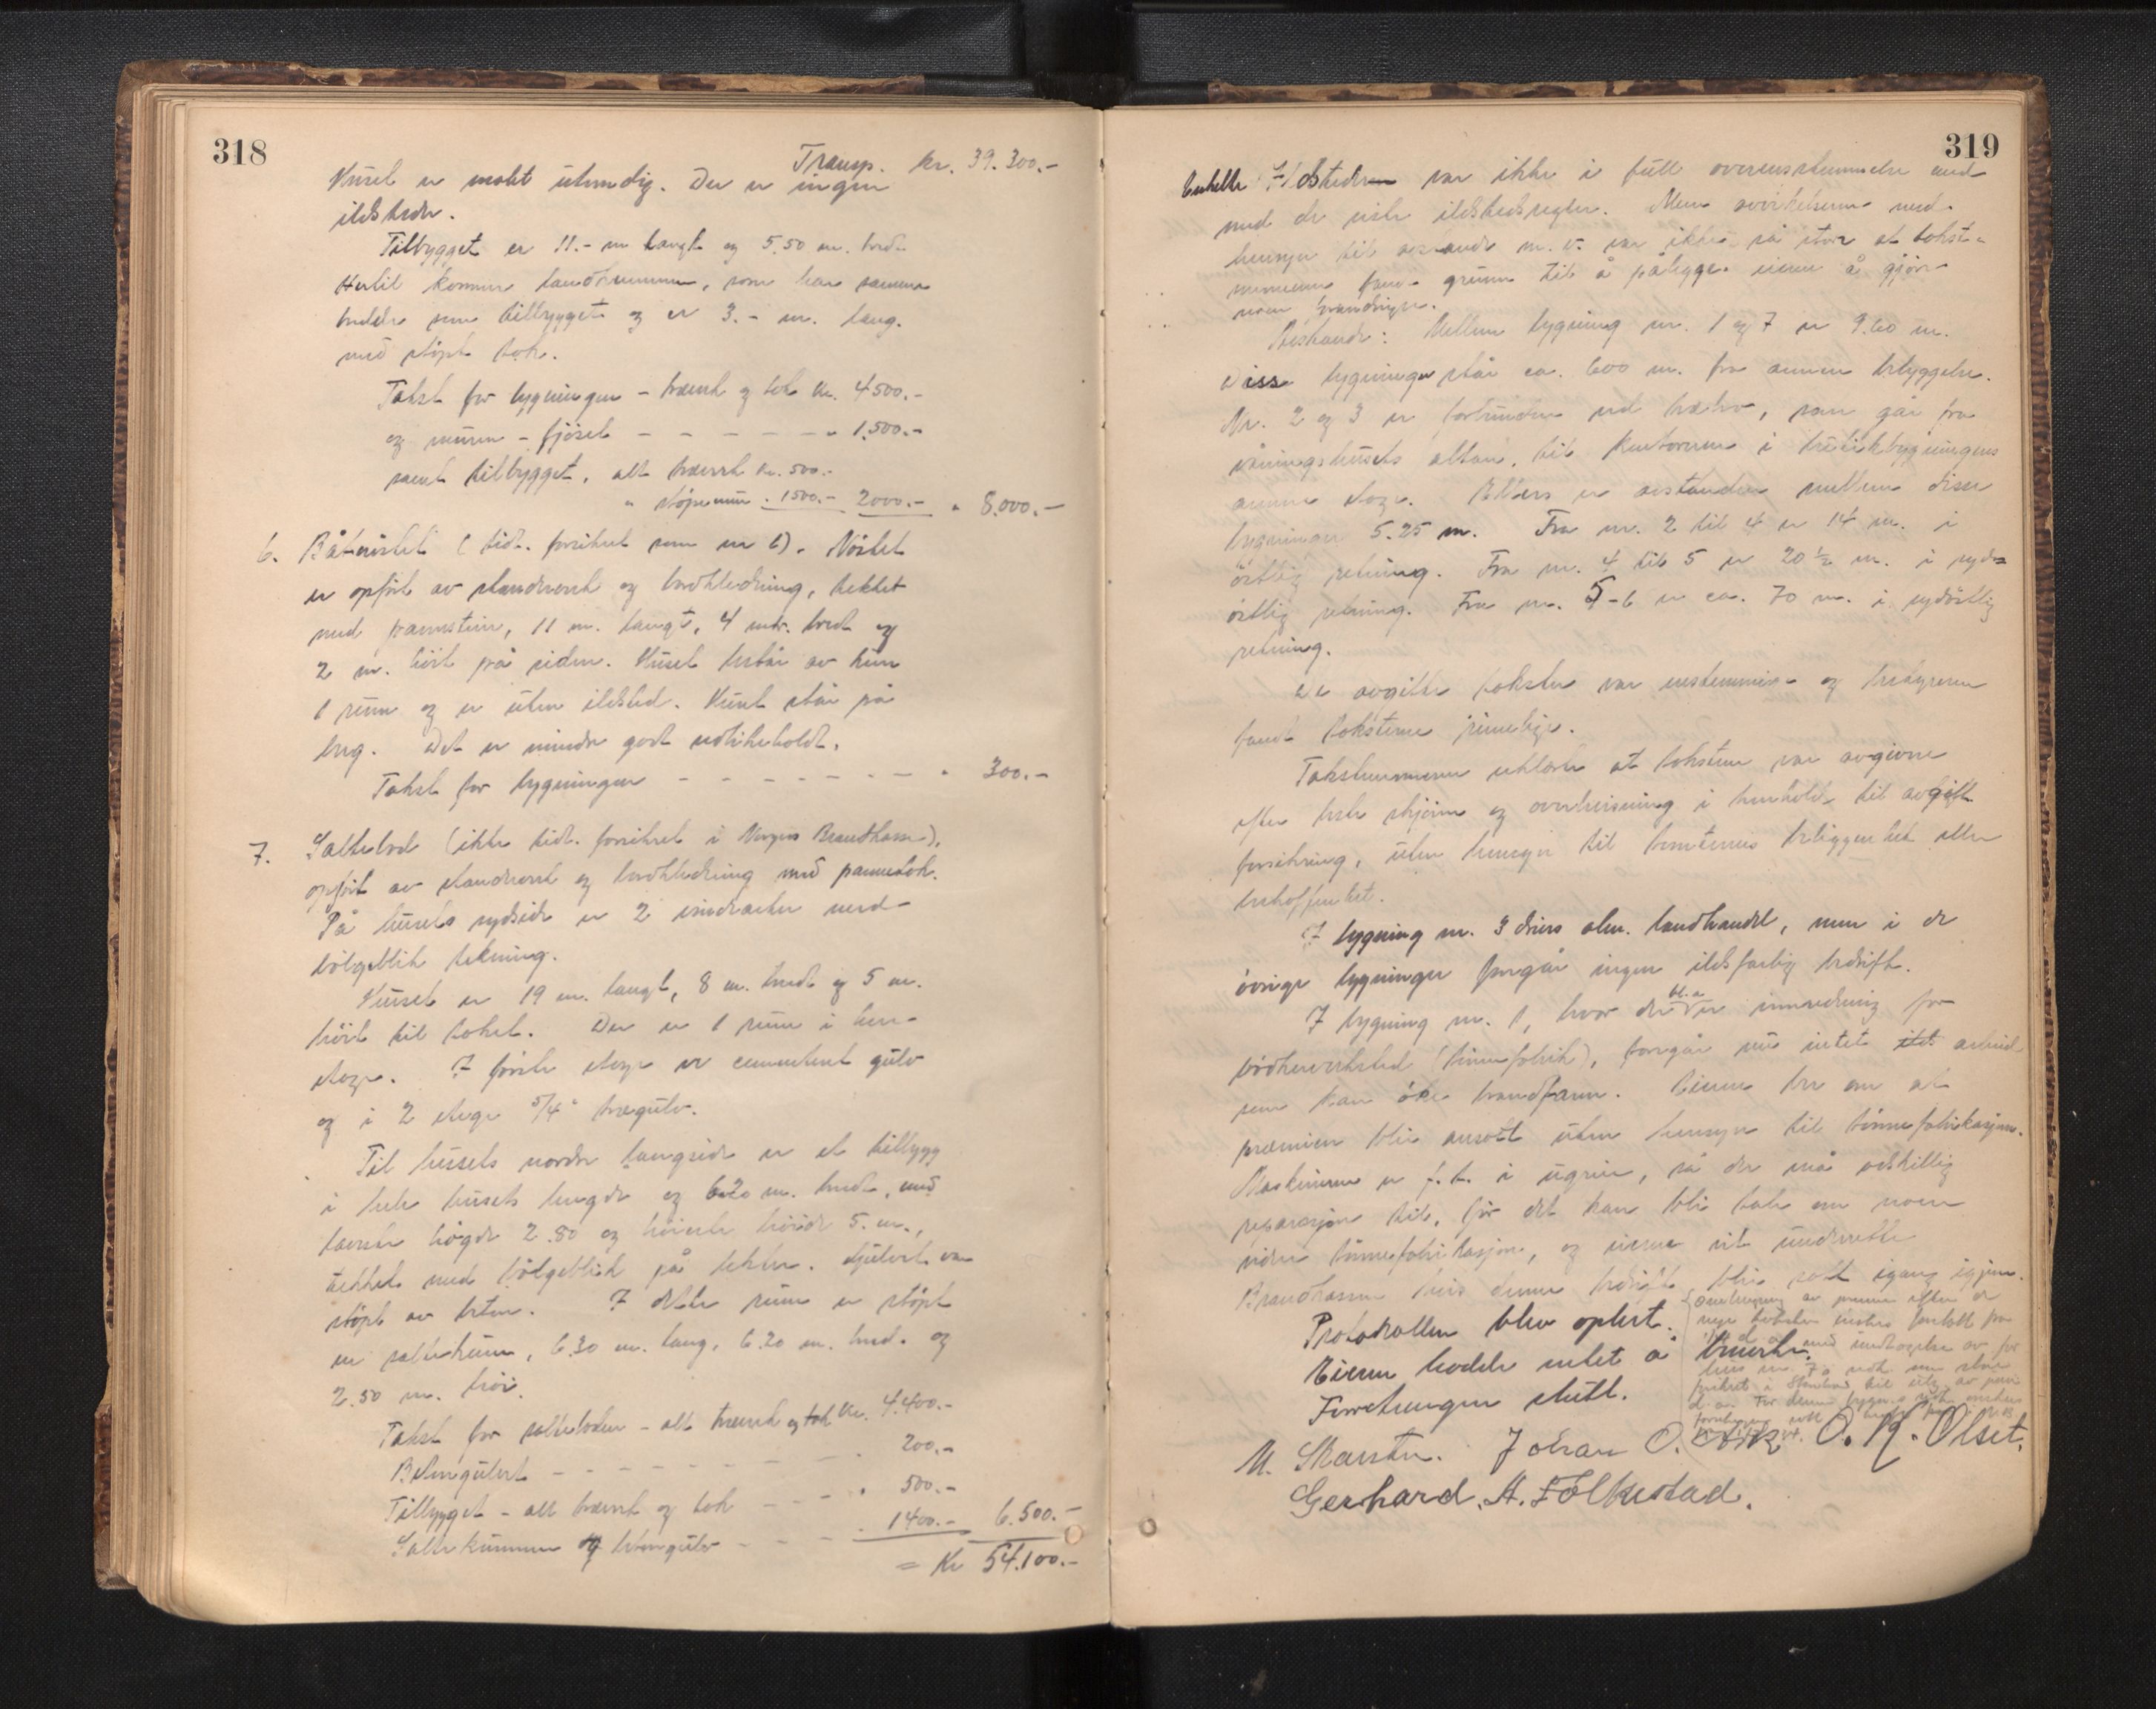 318
Transp. kr. 39.300.-
Huset er malt utvendig. Der er ingen
ildsteder.
Tilbygget er 11.- m langt og 5.50 m. bredt
Hertil kommer landkummen, som har samme
bredde som tilbygget og er 3.- m. lang.
med støpt tak.
Takst for bygningen - træverk og tak kr. 4500.-
og muren - fjøset - - - - - - " 1.500.-
samt tilbygget, alt træverk kr. 500.-
" støpemur " 1500.- 2000.- " 8.000.-
6. Båtnøstet (tidl. forsikret som nr 6). Nøstet
er opført av standverk og bordkledning, tekket
med pannestein, 11 m. langt, 4 mtr. bredt og
2 m. høit på siden. Huset består av kun
1 rum og er uten ildsted. Huset står på
berg. Det er mindre godt vedlikeholdt.
Takst for bygningen - - - - - - - " 300.-
7. Saltebod (ikke tidl. forsikret i Norges Brandkasse),
opført av standverk og bordkledning med pannetak.
På husets sydside er 2 med
bølgeblik tekning.
Huset er 19 m. langt, 8 m. bredt og 5 m.
høit til taket. Der er 1 rum i hver
etage. I første etage er cementert gulv
og i 2 etage 5/4" tregulv.
Til hussets nordre langside er et tilbygg
i hele husets lengde og 6.20 m. bredt, med
laveste høgde 2.80 og høieste høide 5. m.,
tekket med bølgeblik på lekter. Gulvet er
støpt av beton. I dette rum er støpt
en saltekum, 6.30 m. lang, 6.20 m. bred. og
2.50 m. høi.
Takst for salteboden - alt træverk og tak kr. 4.400.-
Betongulvet - - - - - - - - " 200.-
Tilbygget - alt træverk og tak - - - " 500.-
Saltekummen og betongulv - - - " 1400.- 6.500.-
= Kr 54.100.-
319
Enkelte Ildsteder var ikke i full overensstemmelse med
med de siste ildstedsregler. Men avvikelserne med
hensyn til avstande m. v. var ikke så stor at takst-
mennene fant grunn til å pålegge eieren å gjøre
noen forandringer.
Avstande: Mellem bygning nr. 1 og 7 er 9.60 m.
Disse bygninger står ca. 600 m. fra annen bebyggelse.
Nr. 2 og 3 er forbundne ved trebro, som går fra
våningshusets altan, til kontorrum i butikkbygningens
annen etage. Ellers er avstanden mellem disse
bygninger 5.25 m. Fra nr. 2 til 4 er 14 m. i
østlig retning. Fra nr. 4 til 5 er 20 ½ m. i syd-
østlig retning. Fra nr. 5-6 er ca. 70 m. i sydøstlig
retning.
De avgitte takster var enstemmige og bestyreren
fandt taksterne rimelige.
Takstmennene erklærte at taksterne var avgivne
efter beste skjønn og overbevisning i henhold til avgitt
forsikring, uten hensyn til tomtenes beliggenhet eller
beskaffenhet.
I bygning nr. 3 drives alm. landhandel, men i de
øvrige bygninger foregår ingen ildsfarlig bedrift.
I bygning nr. 1, hvor der bl. a er innredning for
bødkerverksted (tønnefabrik), foregår nu intet arbeid
som kan øke brandfaren. Eieren ber om at
premien blir ansatt uten hensyn til tønnefabrikasjon.
Maskinerne er f. t. i ugreie, så der må adskillig
reparasjon til, før det kan bli tale om noen
videre tønnefabrikasjon, og eieren vil underrette
Brandkassen hvis denne bedrift blir satt igang igjen.
Protokollen blev oplest.
Eieren hadde intet å bemerke.
Forretningen sluttet.
M. Skarstein. Johan O. O. K. Olset.
Gerhard. A. Folkestad.